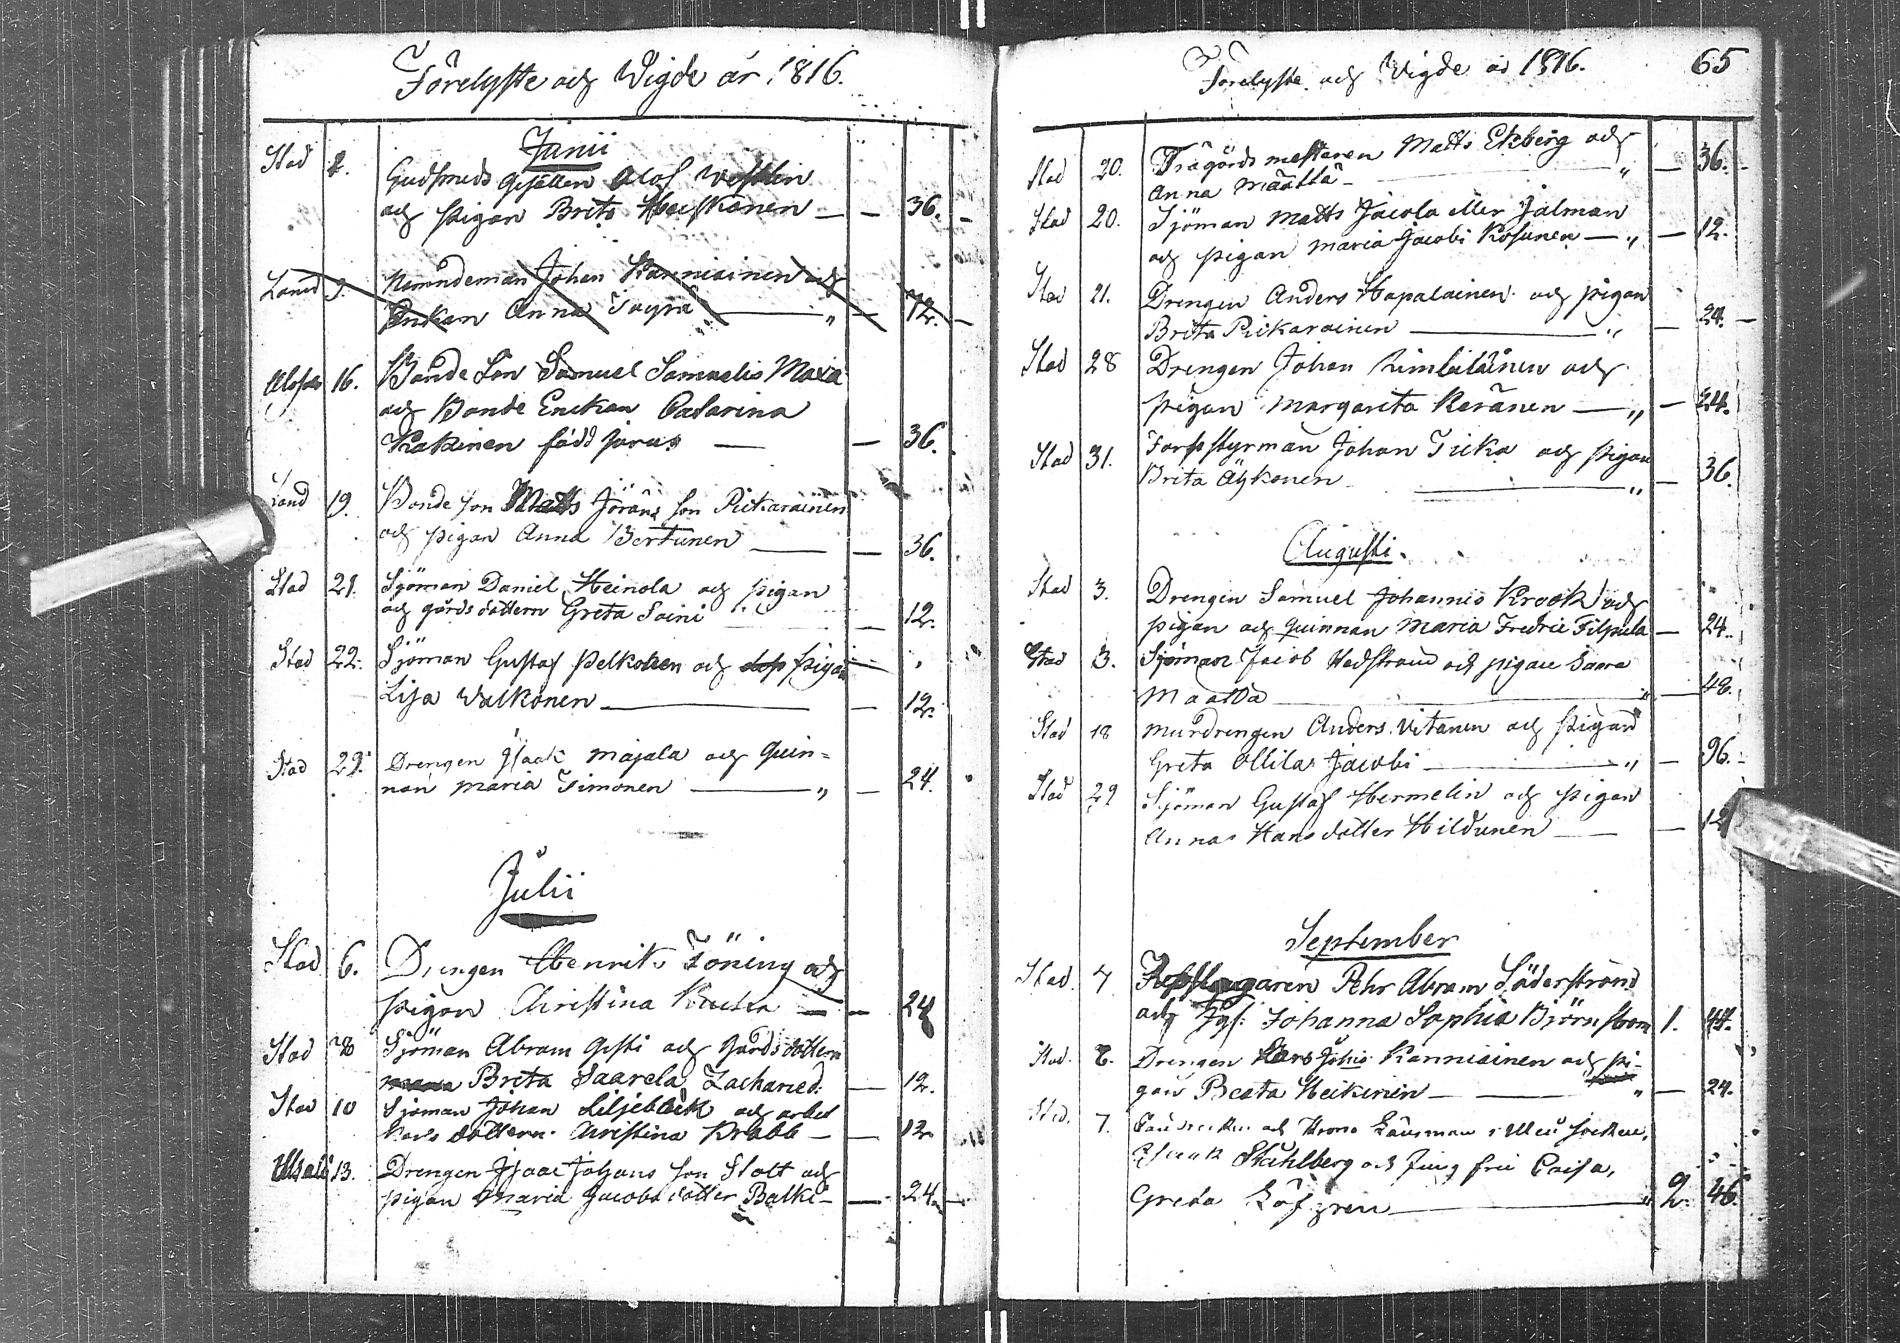 Förelyste och Wigde år 1816.
Junii
Stad
Guldsmeds Gesällen Olof Westlin
och pigan Brita Heiskanen — — 36. —
Land 9. Nämndeman Johan Kanniainen och
Enkan Anna Tayra — " — 12. —
16. Bonde Son Samuel Samuelis
och Bonde Enckan Catarina
Kakinen född — — 36.
Land 19. Bonde son Matts Jörans son Pitkarainen
och pigan Anna Bertunen — — 36.
Stad 21. Sjöman Daniel Heinola och pigan
och gårds dottern Greta Soini — 12.
Stad 22. Sjöman Gustaf Pelkonen och pigan
Lisa Walkonen — — 12.
Stad 29. Drengen Isaak Majala och Quin=
nan Maria Simonen — " — 24.
Julii
Stad 6. Drengen Henrik Töning och
pigan Christina — — 24
Stad Sjöman Abram och Gårds dottern
Brita Saarela Zachariæd. — 12.
Stad 10 Sjöman Johan Liljeblad och arbet
karls dottern Christina Krabb — — 12
13. Drengen Isaac Johans son Slott och
pigan Maria Jacobs dotter Balki — — 24. —
Förelyste och Wigde år 1816. 65
Stad 20. Trägårds mestaren Matts Ekberg och
Anna Määttä — " — 36. —
Stad 20. Sjöman Matts Jacola eller Jalman
och pigan Maria Jacobi Kosunen — " — 12.
Stad 21. Drengen Anders Hapalainen och pigan
Brita Pitkarainen — " — 24. —
Stad 28 Drengen Johan och
pigan Margareta Keränen — " — 24.
Stad 31. Styrman Johan Ticka och pigan
Brita Äykonen — " — 36.
Augusti.
Stad 3. Drengen Samuel Johannis Krook och
pigan och Quinnan Maria Fredric Filpula — 24.
Stad 3. Sjöman Jacob Hedström och pigan Saara
Maatta — " — 48.
Stad 18 Murdrengen Anders Vitanen och Pigan
Greta Ollila Jacobi — " — 96. —
Stad 29 Sjöman Gustaf Hermelin och pigan
Anna Hans dotter Hildunen — — 12
September
Stad. 7 Repslagaren Pehr Abram Söderström
och Jgf. Johanna Sophia Björnström 1. 44.
Stad. Drengen Lars Johis Kanniainen och pi-
gan Beata Heikinen — " — 24.
Stad. 7. och Krono Länsman i socken,
Isaak Stahlberg och Jungfru Caisa,
Greta Löfgren — " 2. 46.